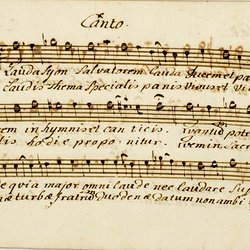 Canto.
Lauda Syon Salvatorem Lauda Ducem et pa
Laudis thema specialis panis vivus et vi
rem in hymnis et can ticis.
lis ho di e propo nitur.
quia major omni laude nec laudare Suf
turbæ fratrum duodenæ datum non ambi